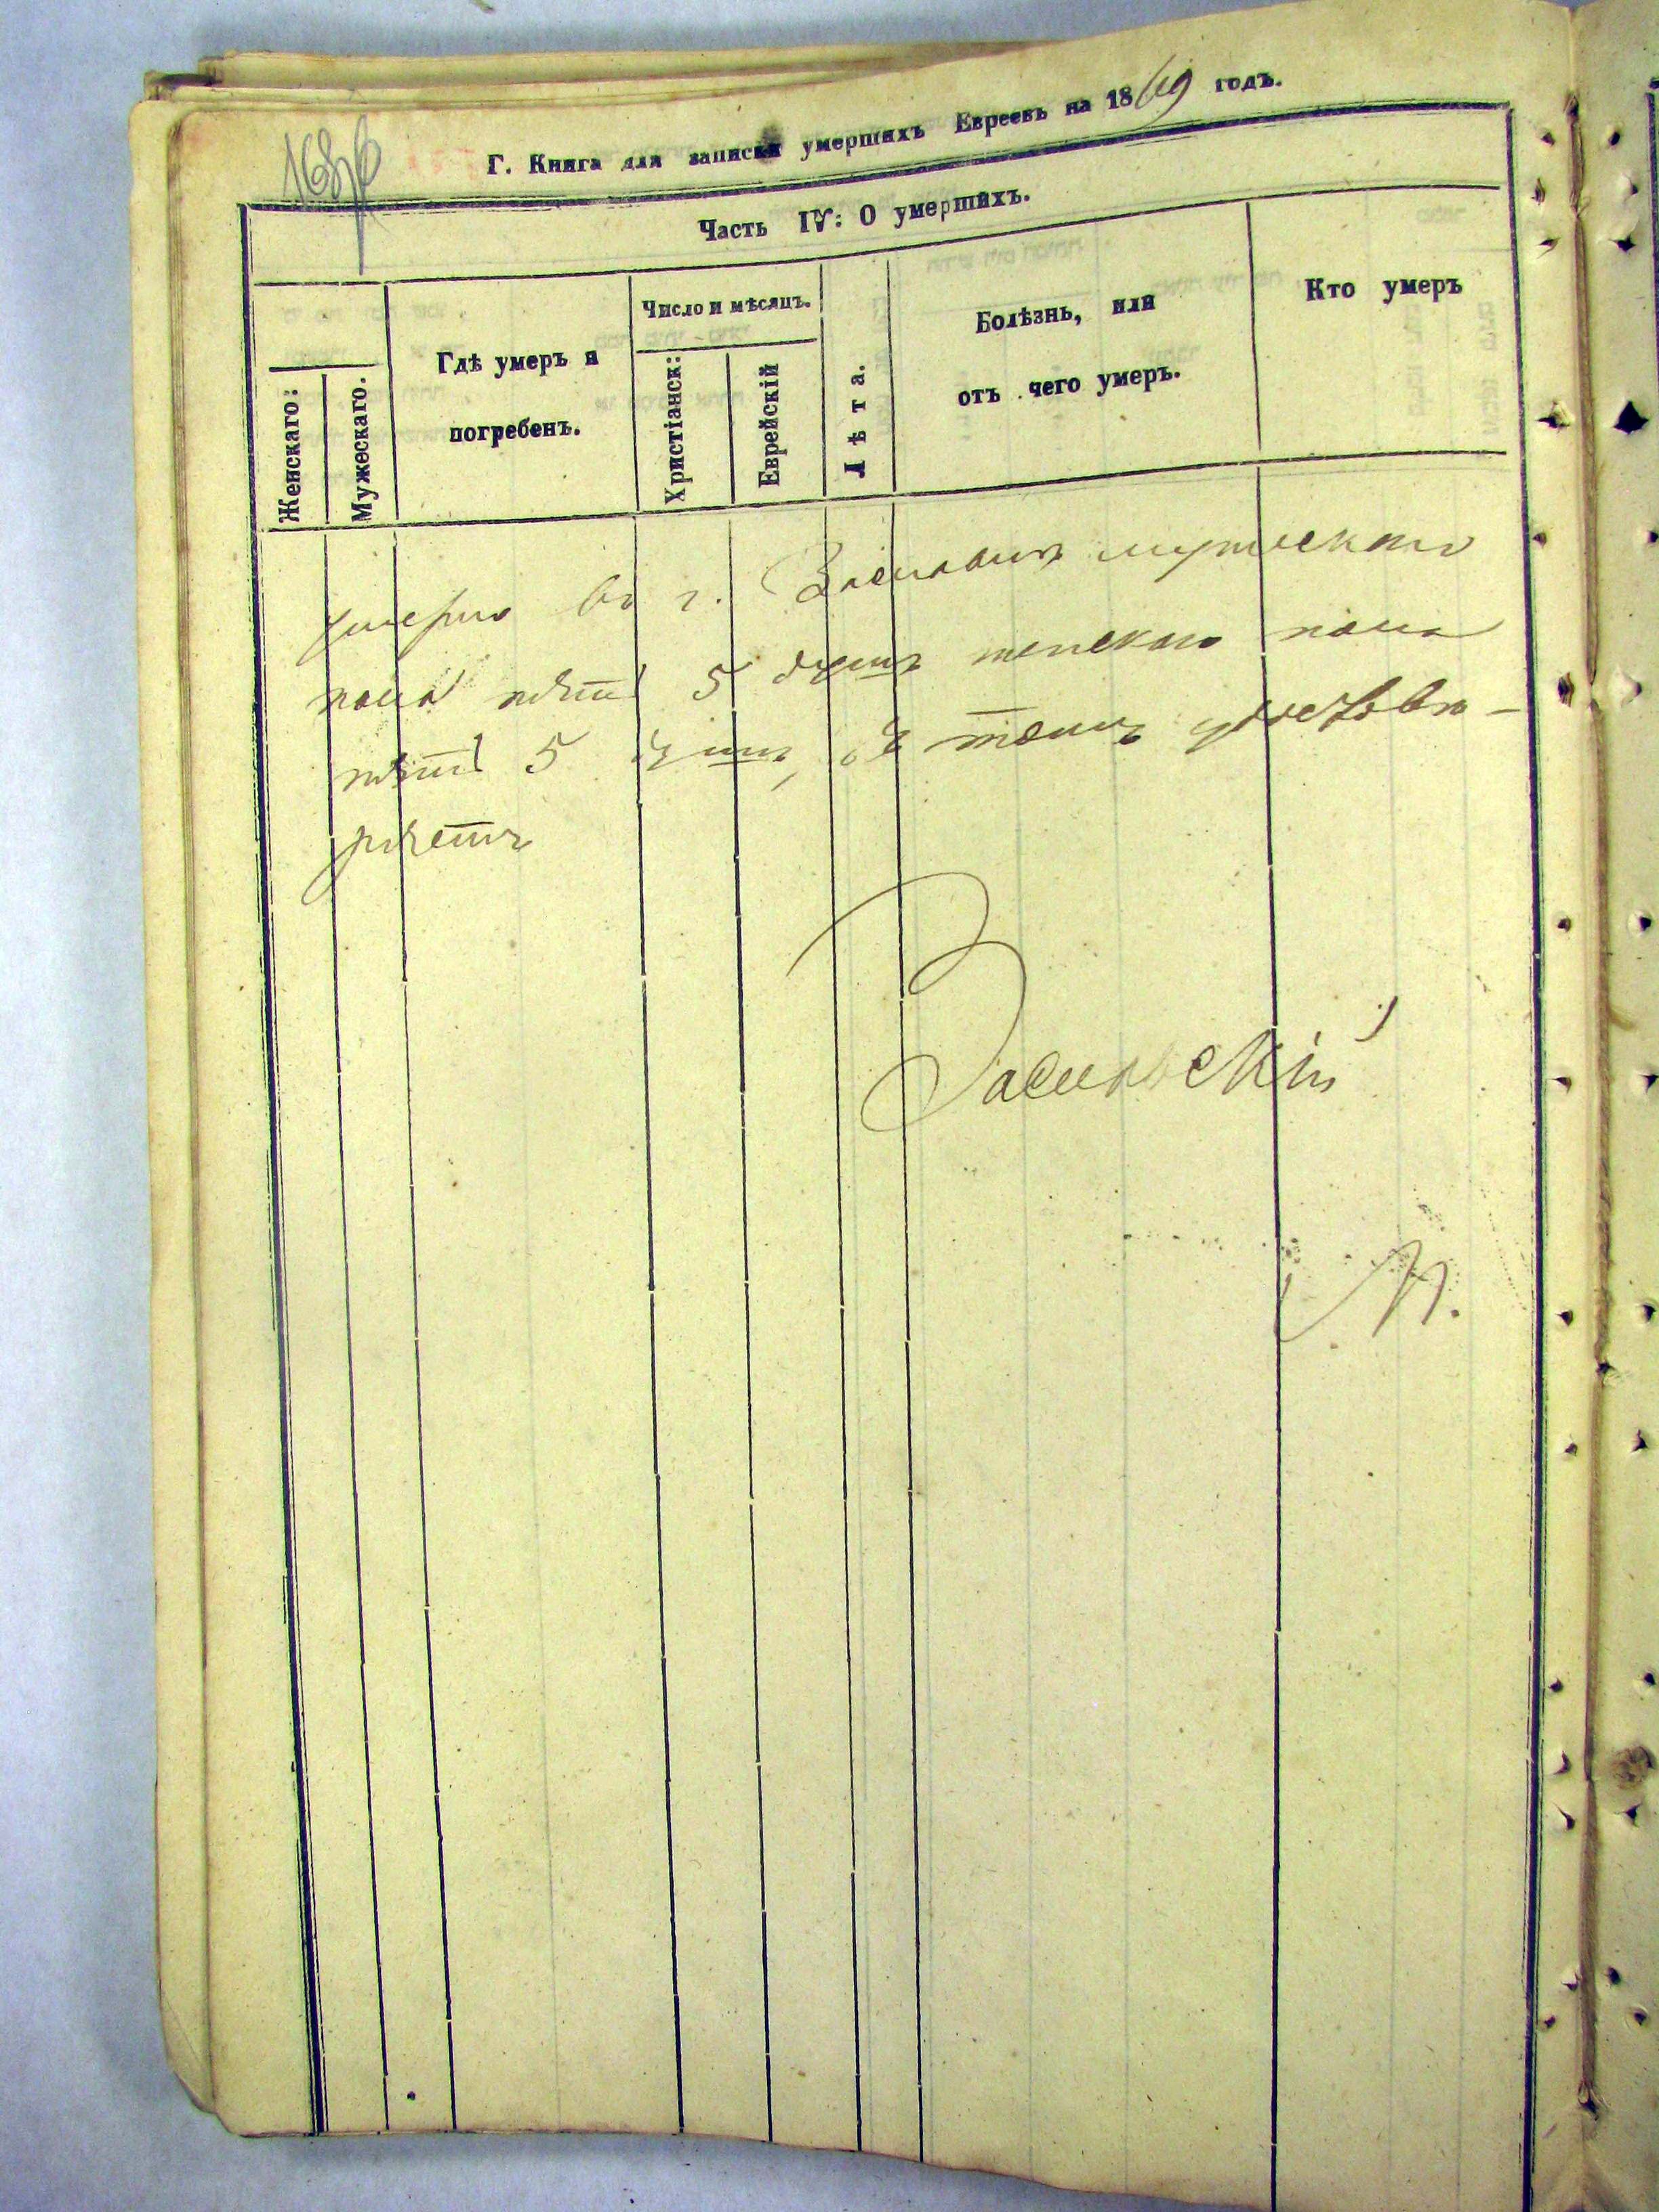 Г. Книга для записки умершихъ Евреевъ на 1869 годъ.
Часть IV: О умершихъ.
Женскаго:
Мужескаго.
Гдѣ умеръ и
погребенъ.
Число и мѣсяцъ.
Христіанск:
Еврейскій
Лѣта.
Болѣзнь, или
отъ чего умеръ.
Кто умеръ
умерло въ г. Заславлѣ мужескаго
пола пять 5 душъ женскаго пола
пять 5 душъ, въ томъ удостовѣ-
ряетъ